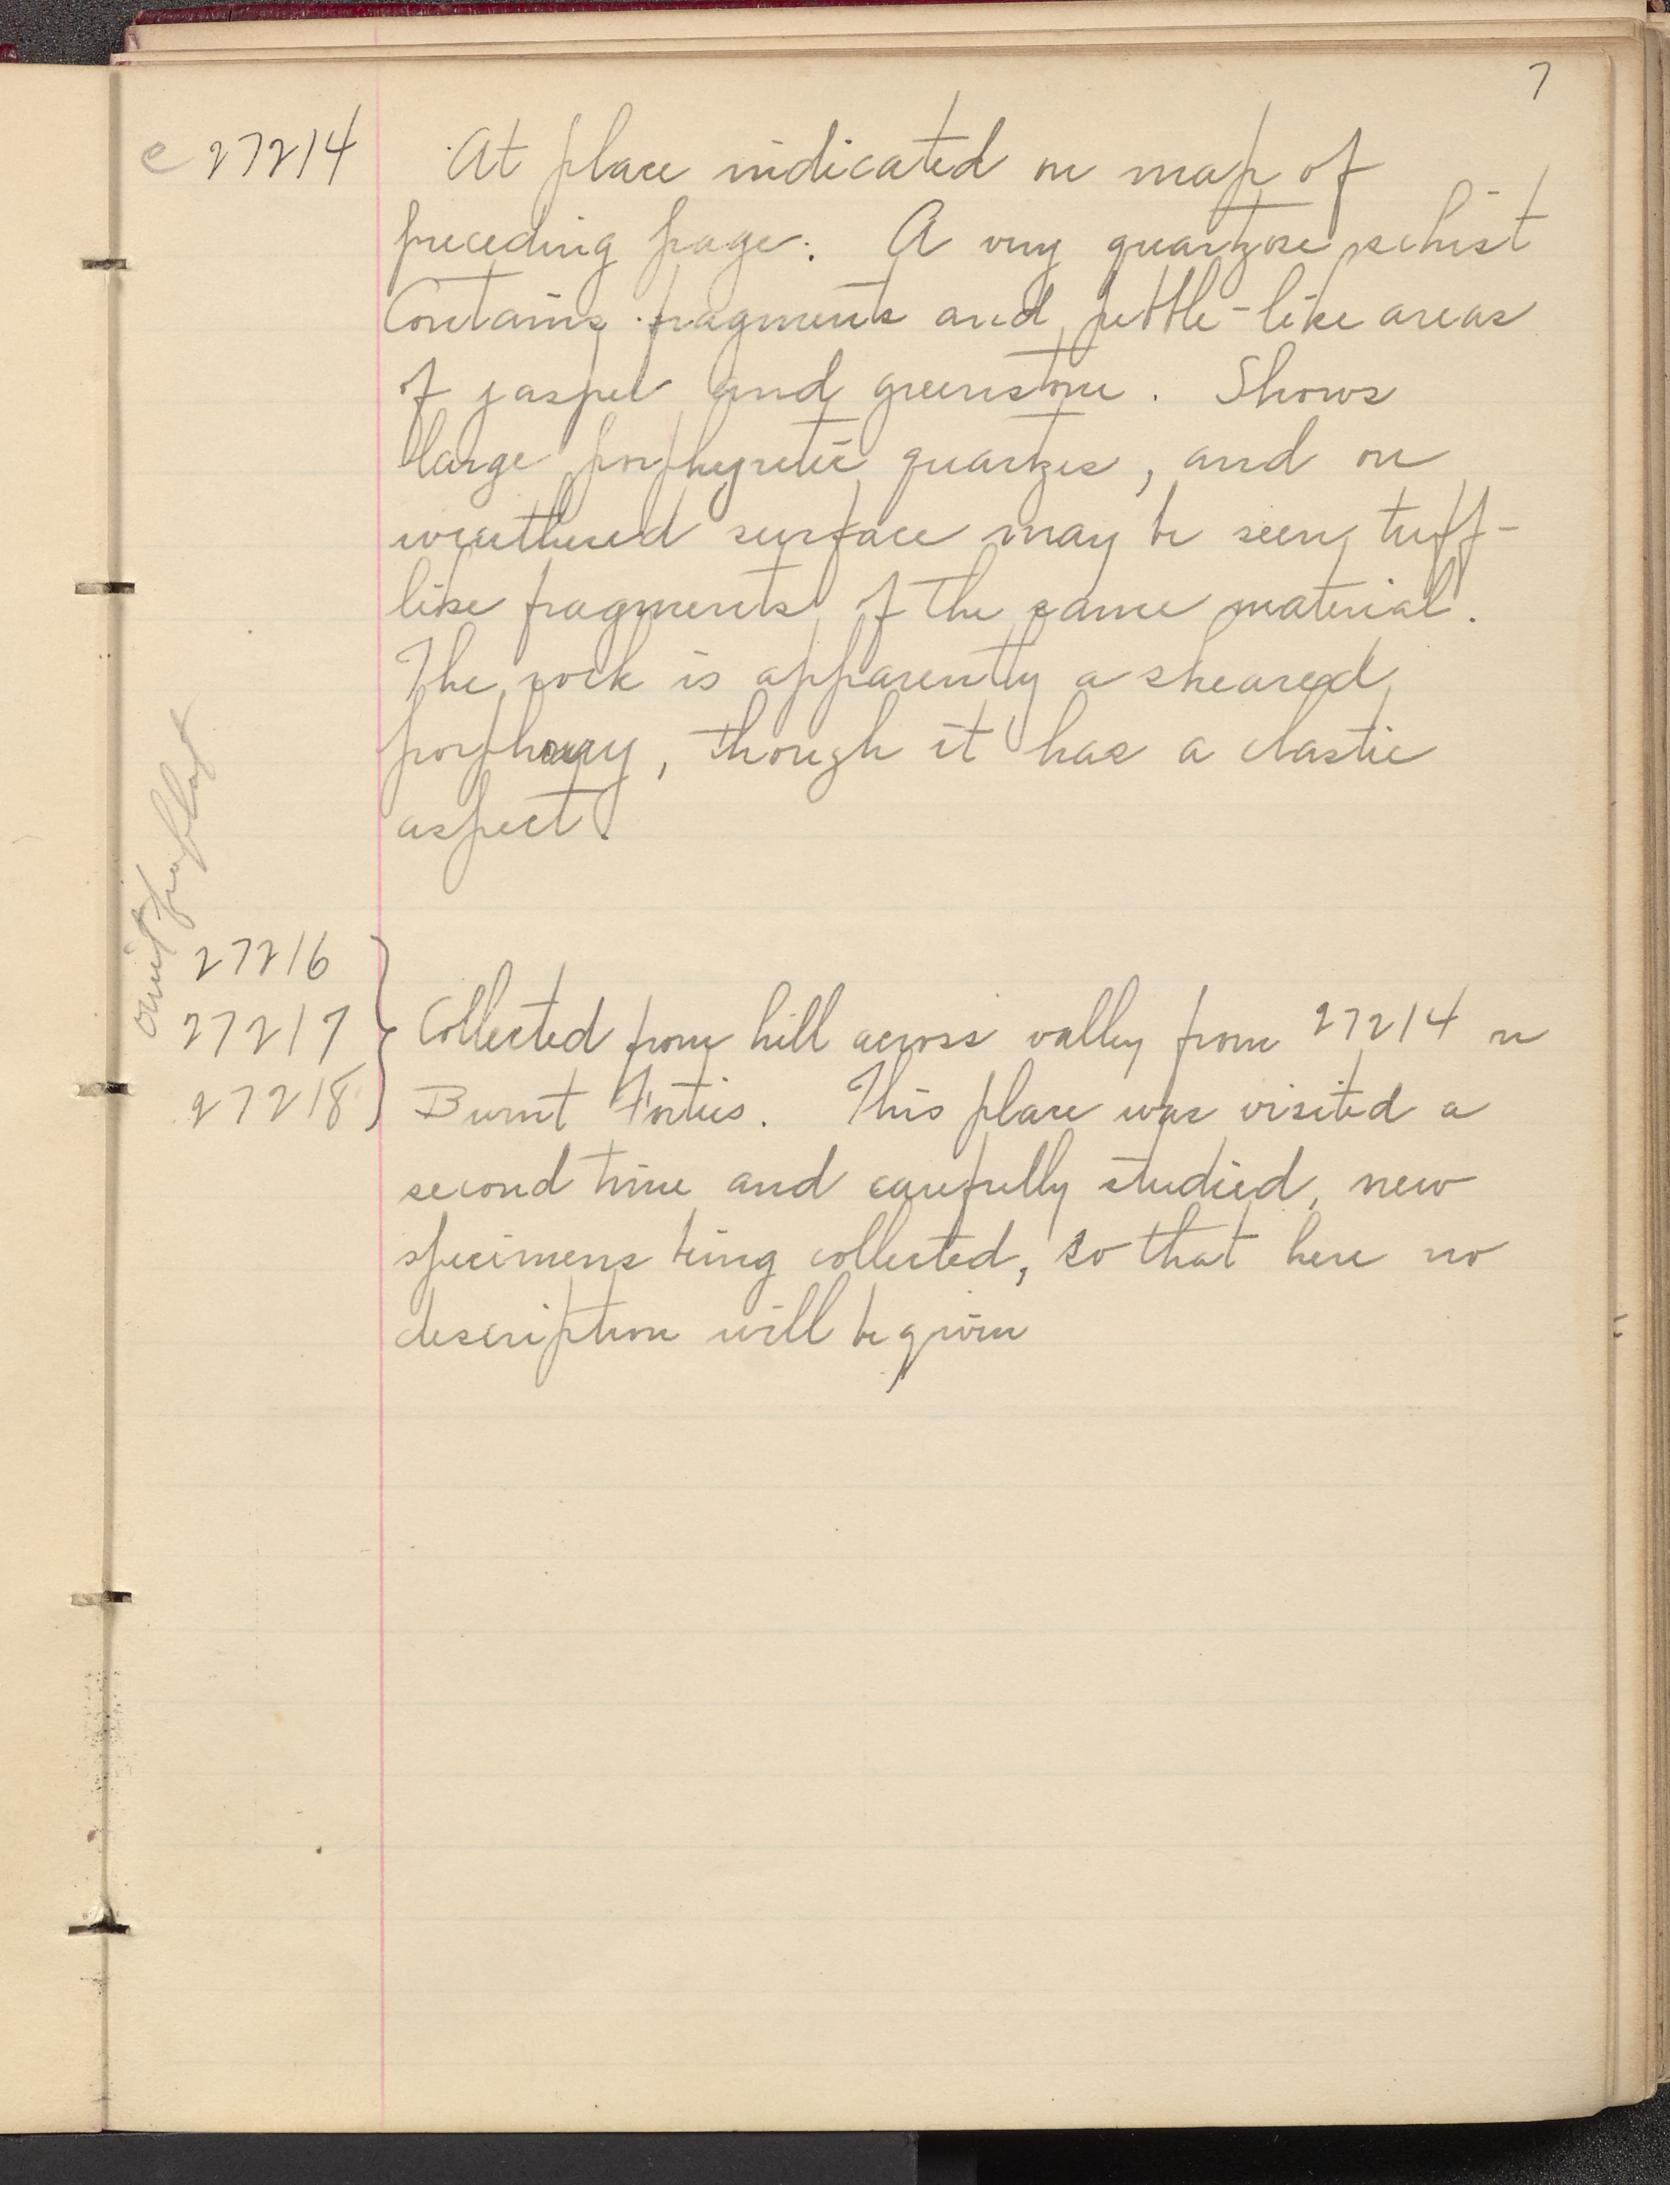 7
e 27214 At place indicated on map of
preceding page. A very quartzose schist
Contains fragments and pebble-like areas
of jasper and greenstone. Shows
large porphyritic quartzes, and on
weathered surface may be seen tuff-
like fragments of the same material.
The rock is apparently a sheared
porphyry, though it has a clastic
aspect.
omit
27216
27217 Collected from hill across valley from 27214 in
27218 Burnt Forties. This place was visited a
second time and carefully studied, new
specimens being collected, so that here no
description will be given